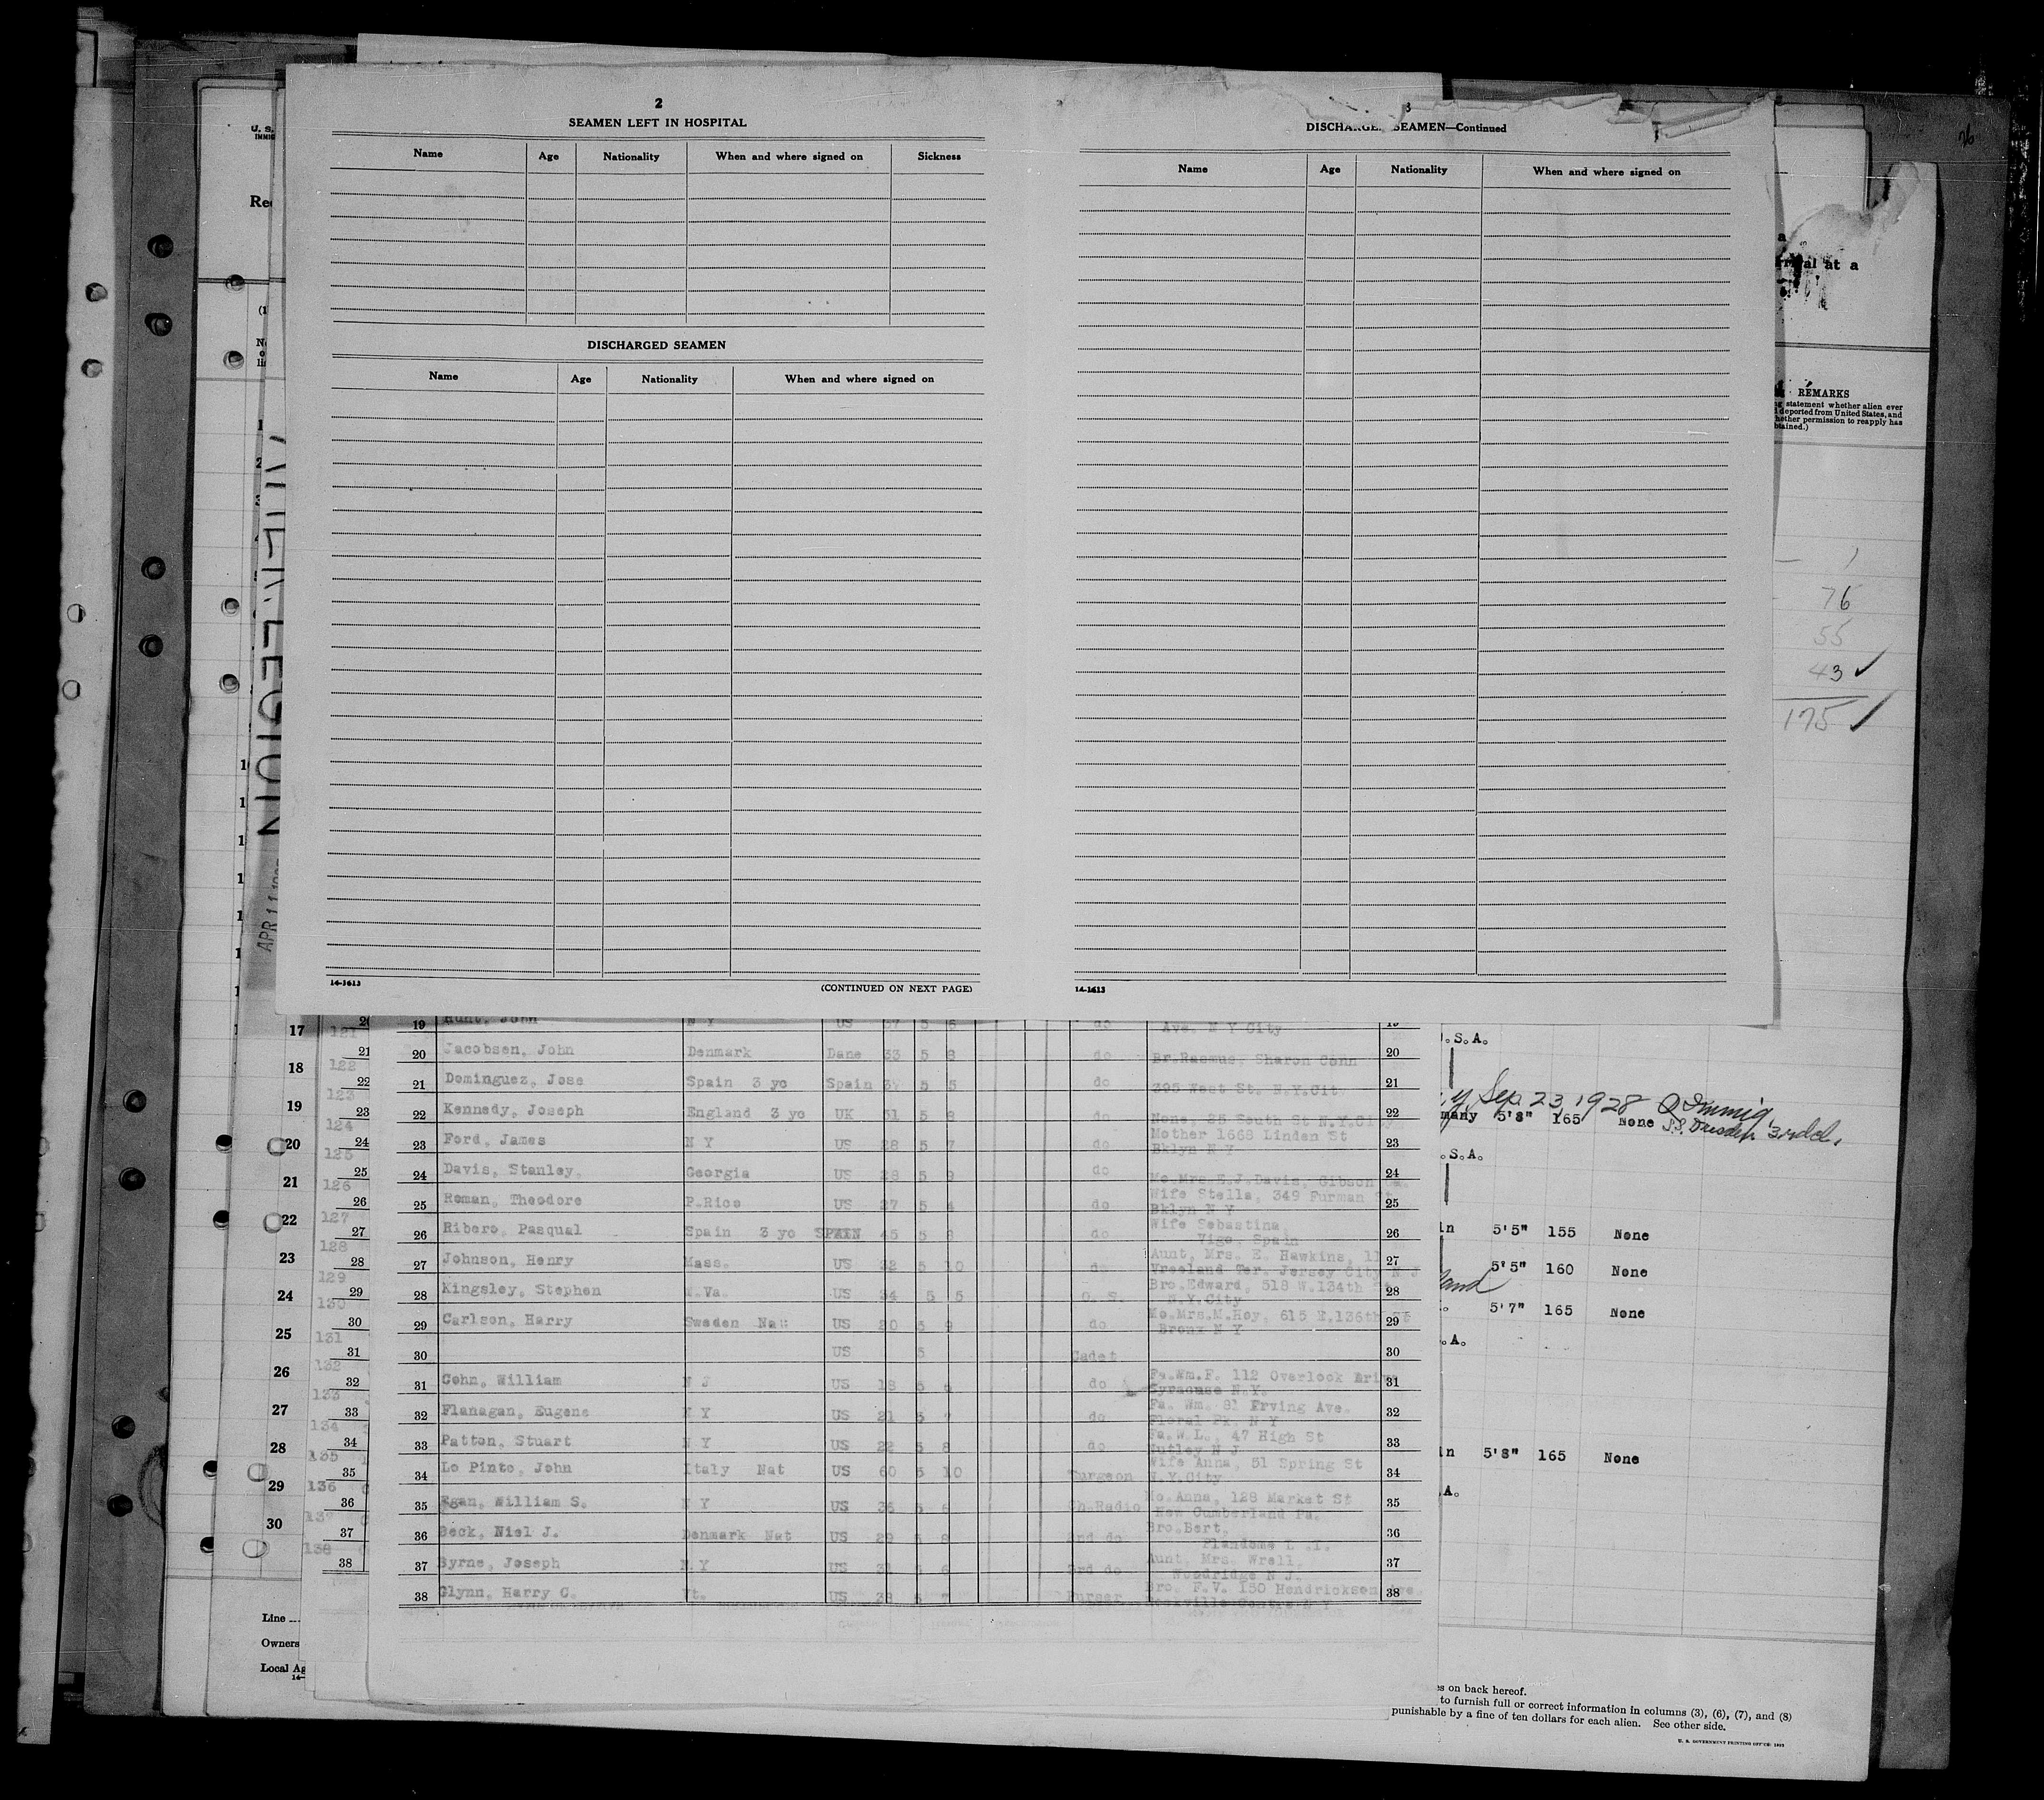 2
SEAMEN LEFT IN HOSPITAL
Name Age Nationality When and where signed on Sickness
DISCHARGED SEAMEN
Name Age Nationality When and where signed on
14-1613 (CONTINUED ON NEXT PAGE)
3
DISCHARGED SEAMEN—Continued
Name Age Nationality When and where signed on
14-1613
U. S.
APR 11
LEGION
al at a
REMARKS
statement whether alien ever
deported from United States, and
whether permission to reapply has
obtained.)
1
76
55
43 ✓
175 ✓
19 Hunt, John N Y US 37 5 6 do Ave. N Y City 19
20 Jacobsen, John Denmark Dane 33 5 8 do Br.Rasmus, Sharon Conn 20
21 Dominguez, Jose Spain 3 yo Spain 5 5 do 395 West St. N.Y.City 21
22 Kennedy, Joseph England 3 yo UK 31 5 8 do None, 25 South St N.Y.City 22
23 Ford, James N Y US 28 5 7 do Mother 1668 Linden St
Bklyn N Y 23
24 Davis, Stanley, Georgia US 28 5 9 do Mo.Mrs E.J.Davis, Gibson 24
25 Roman, Theodore P.Rico US 27 5 do Wife Stella, 349 Furman St
Bklyn N Y 25
26 Ribero, Pasqual Spain 3 yo SPAIN 45 5 8 do Wife Sebastina,
Vigo, Spain 26
27 Johnson, Henry Mass. US 32 5 10 do Aunt, Mrs. E. Hawkins, 11
Vreeland Ter. Jersey City N J 27
28 Kingsley, Stephen W.Va. US 34 5 5 O. S. Bro.Edward, 518 W.134th St
N.Y.City 28
29 Carlson, Harry Sweden Nat US 20 5 9 do Mo.Mrs.M.Hoy, 615 E.136th St
Bronx N Y 29
30 US 5 Cadet 30
31 Cohn, William N J US 18 5 do Fa.Wm.F. 112 Overlook Drive
Syracuse N.Y. 31
32 Flanagan, Eugene N Y US 21 5 do Fa. Wm. 81 Erving Ave.
Floral Pk. N Y 32
33 Patton, Stuart N Y US 22 5 8 do Fa.W.L., 47 High St
Nutley N J 33
34 Lo Pinto, John Italy Nat US 60 5 10 Surgeon Wife Anna, 51 Spring St
N.Y.City 34
35 Egan, William S. N Y US 35 5 Ch.Radio Mo.Anna, 128 Market St
New Cumberland Pa. 35
36 Beck, Niel J. Denmark Nat US 29 5 8 do Bro.Bert,
Plandome L .I. 36
37 Byrne, Joseph N.Y US 5 6 3rd do Aunt, Mrs. Wrell,
Woodridge N J. 37
38 Glynn, Harry C. Vt. US 5 7 Purser Bro. F.V. 150 Hendricksen Ave.
Rockville Centre N Y 38
17
18
19
20
21
22
23
24
25
26
27
28
29
30
121
122
123
124
125
126
127
128
129
130
131
132
133
134
135
136
137
138
21
22
23
24
25
26
27
28
29
30
31
32
33
34
35
36
37
38
.S.A.
Sep. 23, 1928
many 5'8" 165 None S.S. Dresden 3rd cl.
.S.A.
in 5'5" 155 None
5'5" 160 None
land
5'7" 165 None
.A.
in 5'8" 165 None
A.
Line
Owners
Local Ag
on back hereof.
to furnish full or correct information in columns (3), (6), (7), and (8)
punishable by a fine of ten dollars for each alien. See other side.
U. S. GOVERNMENT PRINTING OFFICE